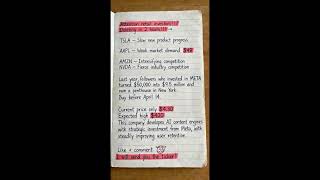 Attention retail investors!!!
Deleting in 2 hours!!! →
TSLA – Slow new product progress
AAPL – Weak market demand $49
AMZN – Intensifying competition
NVDA – Fierce industry competition
Last year, followers who invested in META
turned $50,000 into $9.5 million and
own a penthouse in New York.
Buy before April 14.
Current price only $4.30
Expected high $420
This company develops AI content engines
with strategic investment from Meta, with
steadily improving user retention.
Like + comment
I will send you the ticker!